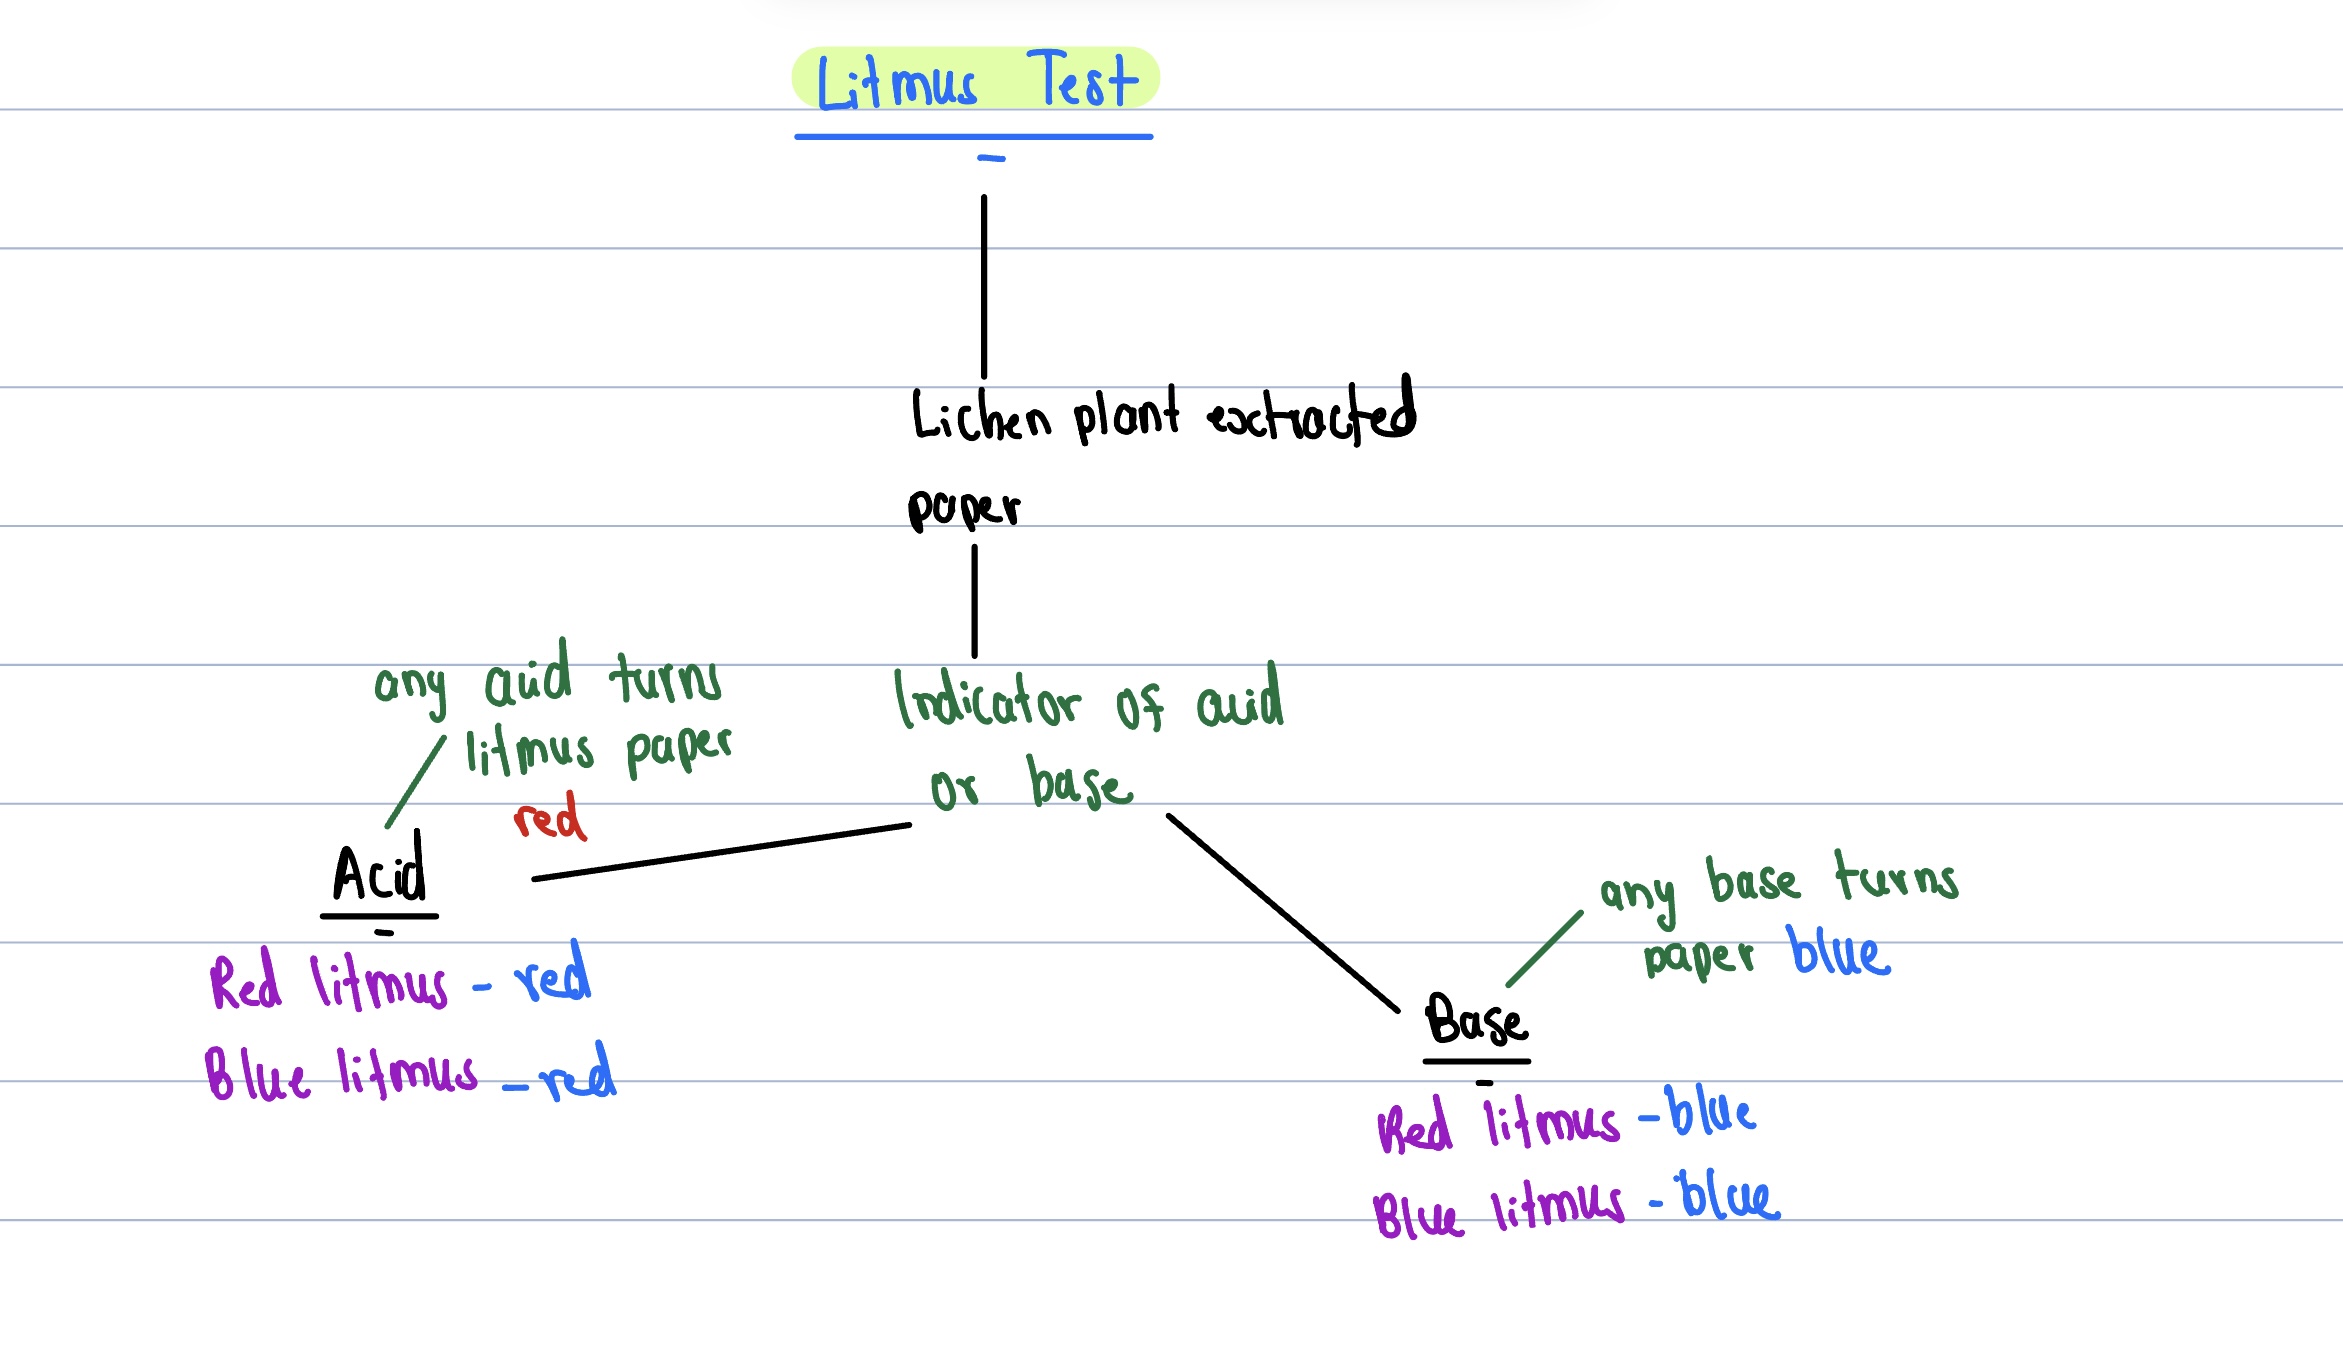 Litmus Test
Lichen plant extracted
paper
Indicator of acid
or base
any acid turns
litmus paper
red
Acid
Red litmus - red
Blue litmus - red
any base turns
paper blue
Base
Red litmus - blue
Blue litmus - blue